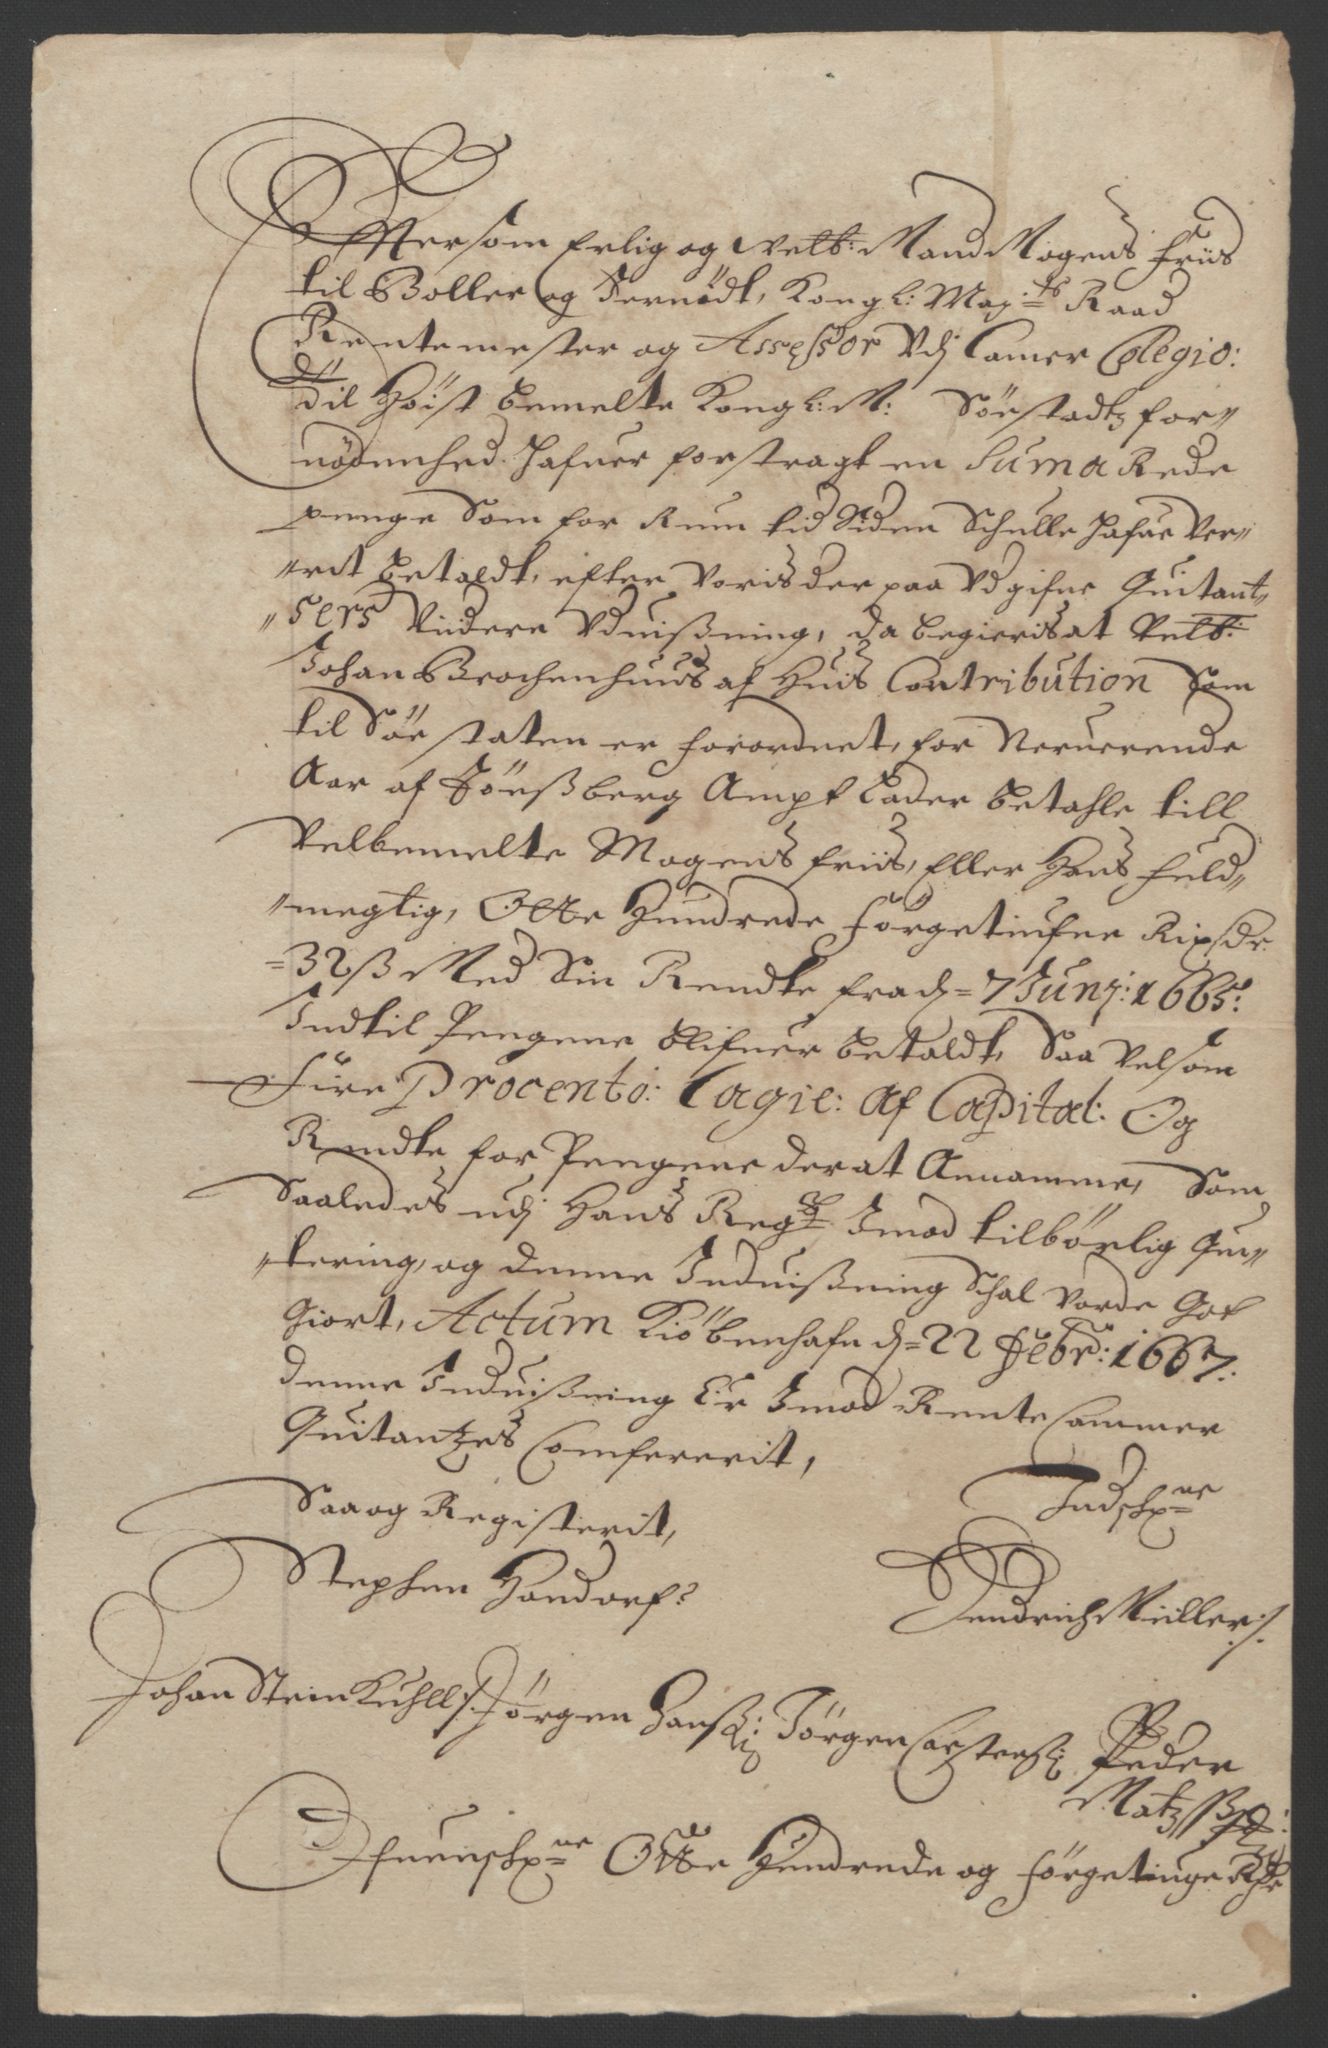 Effttersom Erlig og Velb: Mand Mogens Friis
til Boller og Jernödt, Kongl: May:ts Raad
Rentemester og Assessor Vdj Camer Colegio:
Til Höist bemelte Kongl: M: Söestadtz for"
nödenhed. Hafuer forstragt en Suma Rede
penge Som for Rum tid Siden Schulle hafue Ver"
"rit betaldt, efter voris der paa Vdgifne Quitant"
"sers Viidere Vduißning, da begieris at Velb:
Johan Brochenhuus af Huis Contribution Som
til Söe staten er forordnet, for Neruerende
Aar af Tönßberg Ampt Lader betahle till
Velbemelte Mogens friis, Eller Hans fuld"
"megtig, Otte Hundrede förgetiufue Rixsdr
=32ß Med Sin Rendte fra d= 7 Junj: 1665:
Indtil Pengene blifuer betaldt, Saa velsom
Fire Procento: Lagie: Af Capital: Og
Rendte for Pengene derat Annamme, Som
Saaledes udj Hans Regsk Imod tilbörlig Qui"
"tering, og denne Induißning Schal vorde Got
Giort, Actum Kiöbenhafn d= 22 Febr: 1667:
denne Induißning Er Imod Rente Cammer
Quitantzes Confererit,
Saa og Registerit,
Stephen Hondorf:
Hendrich Müller:/.
Johan Stein Kuhll: Jörgen Hanß: Jörgen Carstenß: Peder
Matzß:
Otte Hundrede og förgetiuge Rdr